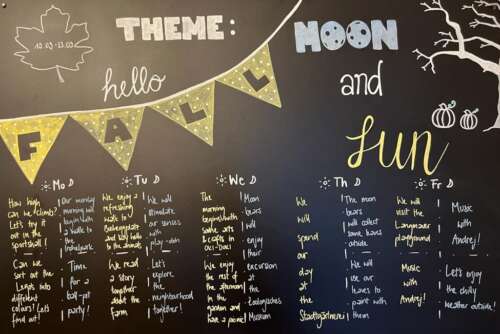 10.03-13.03
THEME: MOON
hello
and
FALL
fun
Mo
How high
can we climb?
Let's try it
out in the
sportshall!
Can we
sort out the
Legos into
different
colours? Let's
find out!
Our morning
will
begin with
a walk to the
Time
for a
ball-pit
party!
Tu
We enjoy a
refreshing
walk to
and say hello
to the animals
We read
a story
together
about the
Farm
We will
stimulate
our senses
with
play-doh
Let's
explore
the
neighbourhood
together!
We
The
morning
begins with
some arts
& crafts to
We enjoy
the rest of
the afternoon
in the
garden and
have a picnic!
The
Moon
bears
will
enjoy
their
excursion
at the
Zoologisches
Museum
Th
We
will
spend
our
day
at the
Stadtgärtnerei
The moon
bears
will collect
some leaves
outside.
We will
use our
leaves to
paint with
them
Fr
We will
visit the
Langmauer
playground
Music
with
Andrej!
Music
with
Andrej!
Let's enjoy
the chilly
weather outside!